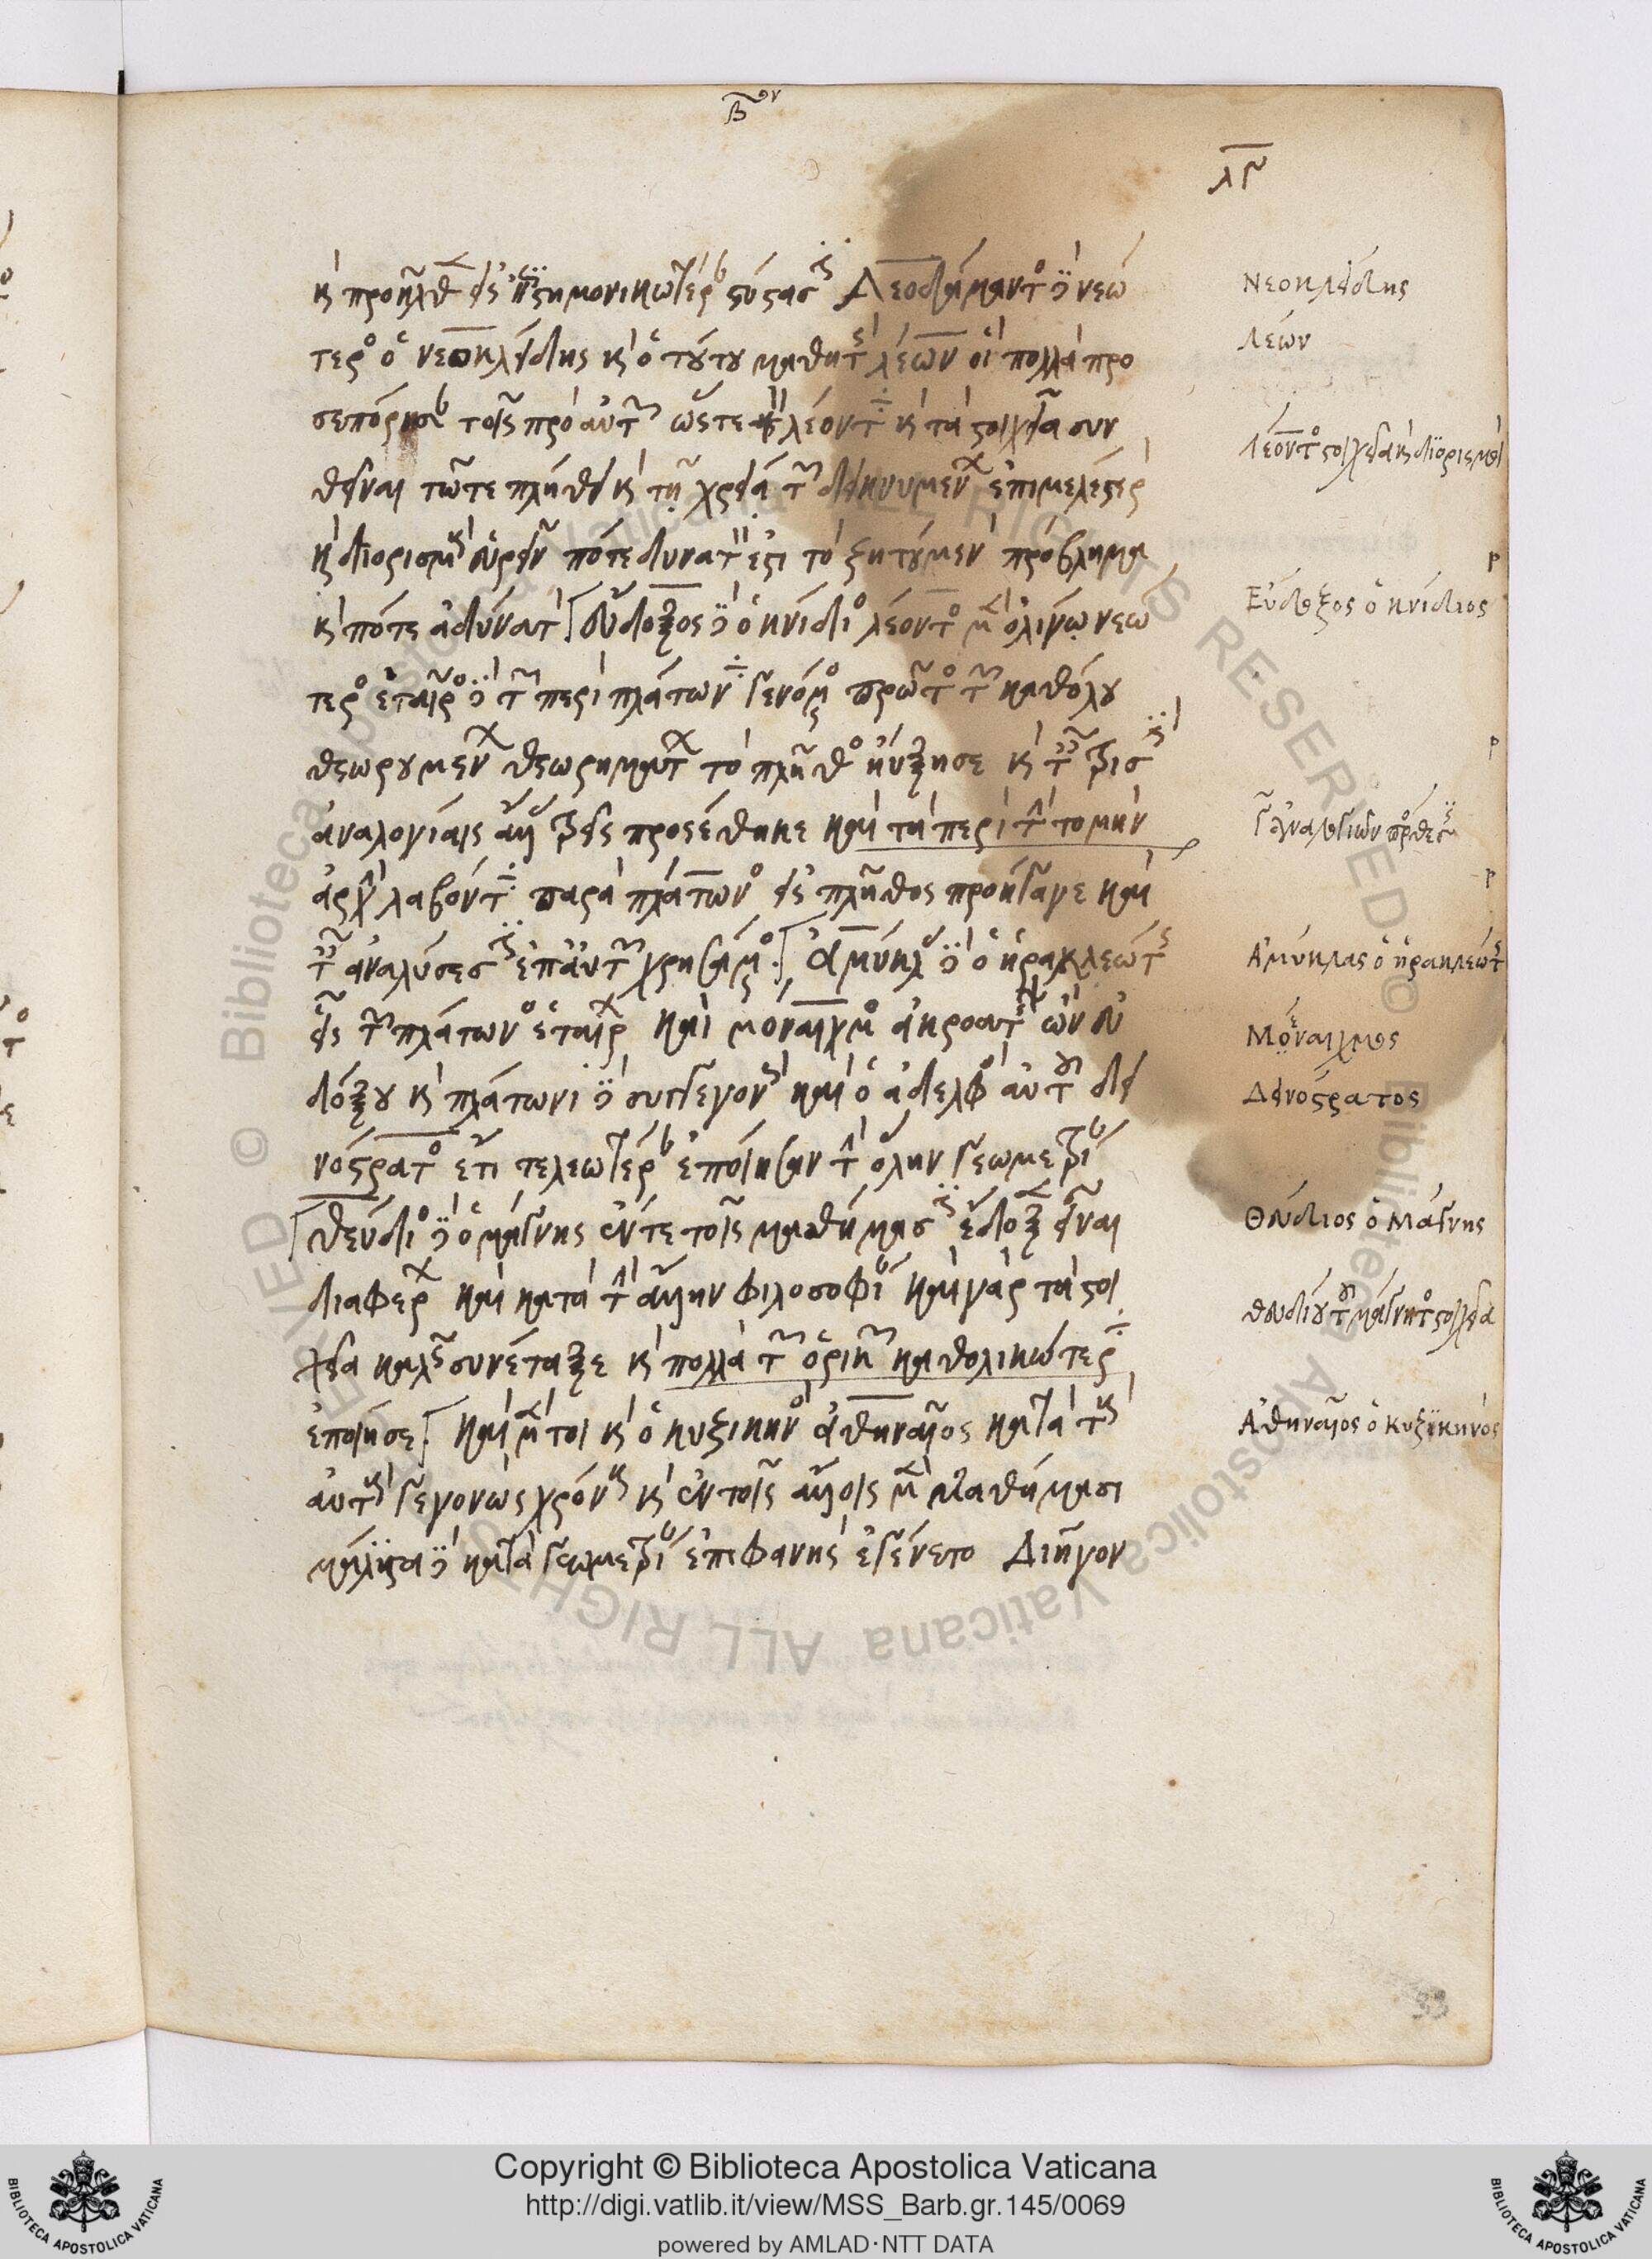 β̅ον
λγ
καὶ προῆλθεν εἰς ἐπιστημονικωτέραν σύστασιν Λεοδάμαντος δὲ νεώ
τερος ὁ νεοκλείδης καὶ ὁ τούτου μαθητὴς λέων οἳ πολλὰ προ
σευπόρησαν τοῖς πρὸ αὐτῶν ὥστε τὸν λέοντα καὶ τὰ στοιχεῖα συν
θεῖναι τῶτε πλήθει καὶ τῇ χρεία τῶν δεικνυμένων ἐπιμελέστερον
καὶ διορισμοὺς εὑρεῖν πότε δυνατόν ἐστι τὸ ζητούμενον πρόβλημα
καὶ πότε ἀδύνατον εὔδοξος δὲ ὁ κνίδιος λέοντος μὲν ὀλίγῳ νεώ
τερος ἑταῖρος δὲ τῶν περὶ πλάτωνα γενόμενος πρῶτος τῶν καθόλου
θεωρουμένων θεωρημάτων τὸ πλῆθος ηὔξησε καὶ ταῖς τρισὶν
ἀναλογίαις ἄλλας τρεῖς προσέθηκε καὶ τὰ περὶ τὴν τομὴν
ἀρχὴν λαβόντα παρὰ πλάτωνος εἰς πλῆθος προήγαγε καὶ
ταῖς ἀναλύσεσιν ἐπαὐτῶν χρησάμενος. ἀμύκλας δὲ ὁ ἡρακλεώτης
εἷς τῶν πλάτωνος ἑταίρων καὶ μέναιχμος ἀκροατὴς ὢν εὐ
δόξου καὶ πλάτωνι δὲ συγγεγονὼς καὶ ὁ ἀδελφὸς αὐτοῦ δει
νόστρατος ἔτι τελεωτέραν ἐποίησαν τὴν ὅλην γεωμετρίαν
θεύδιος δὲ ὁ μάγνης ἔντε τοῖς μαθήμασιν ἔδοξεν εἶναι
διαφέρων καὶ κατὰ τὴν ἄλλην φιλοσοφίαν καὶ γὰρ τὰ στοι
χεῖα καλῶς συνέταξε καὶ πολλὰ τῶν ὁρικῶν καθολικώτερα
ἐποίησε. καὶ μέντοι καὶ ὁ κυζικηνὸς ἀθηναῖος κατὰ τοὺς
αὐτοὺς γεγονὼς χρόνους καὶ ἐν τοῖς ἄλλοις μὲν μαθήμασι
μάλιστα δὲ κατὰ γεωμετρίαν ἐπιφανὴς ἐγένετο Διῆγον
Νεοκλείδης
Λέων
Λέοντος στοιχεῖα καὶ διορισμοὶ
Εὐδοξος ὁ κνίδιος
Ἀμύκλας ὁ ἡρακλεώτης
Μέναιχμος
Δεινόστρατος
Θεύδιος ὁ Μάγνης
θευδίου τοῦ μάγνητος στοιχεῖα
Ἀθηναῖος ὁ Κυζικηνός
33
Copyright © Biblioteca Apostolica Vaticana
http://digi.vatlib.it/view/MSS_Barb.gr.145/0069
powered by AMLAD·NTT DATA